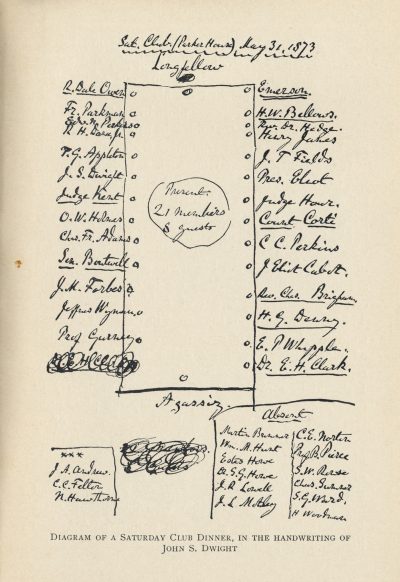 Sat. Club (Parker House) May 31, 1873
Longfellow
R. Dale Owen
Fr. Parkman
R. H. Dana Jr.
T. G. Appleton
J. S. Dwight
Judge Kent
O. W. Holmes
Chs. Fr. Adams
Sen. Boutwell
J. M. Forbes
Jeffries Wyman
Prof Gurney
Present
21 members
8 guests
Emerson.
H. W. Bellows.
Rev. Dr. Hedge.
Henry James
J. T. Fields
Pres. Eliot
Judge Hoar.
Count Corti
C C. Perkins
J Eliot Cabot.
Rev. Chs. Brigham
H. G. Denny.
E. P Whipple.
Dr. E. H. Clark.
Agassiz.
***
J. A. Andrew.
C. C. Felton
N. Hawthorne
Absent
Martin Brimmer
Wm. M. Hunt
Estes Howe
Dr. S. G. Howe
J. R Lowell
J. L Motley
C. E. Norton
Prof B. Peirce
S. W. Rowse
Chas. Sumner
S. G. Ward.
H Woodman
DIAGRAM OF A SATURDAY CLUB DINNER, IN THE HANDWRITING OF
JOHN S. DWIGHT